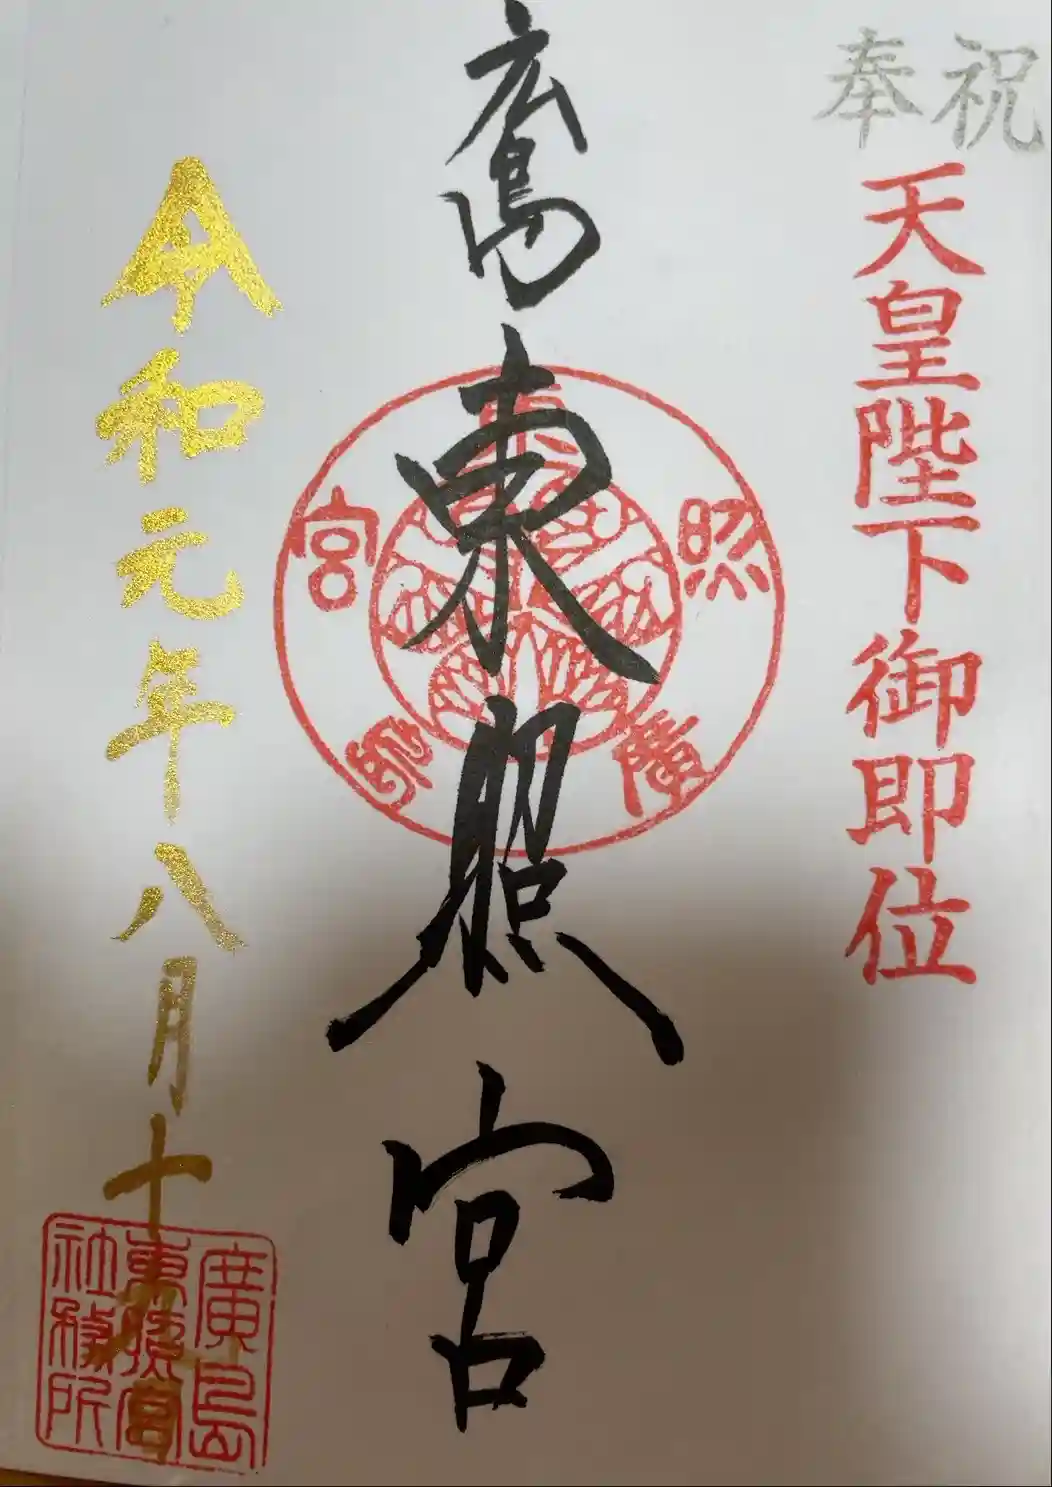 奉祝
天皇陛下御即位
広島東照宮
東照宮廣島
令和元年八月十九日
廣島
東照宮
社務所